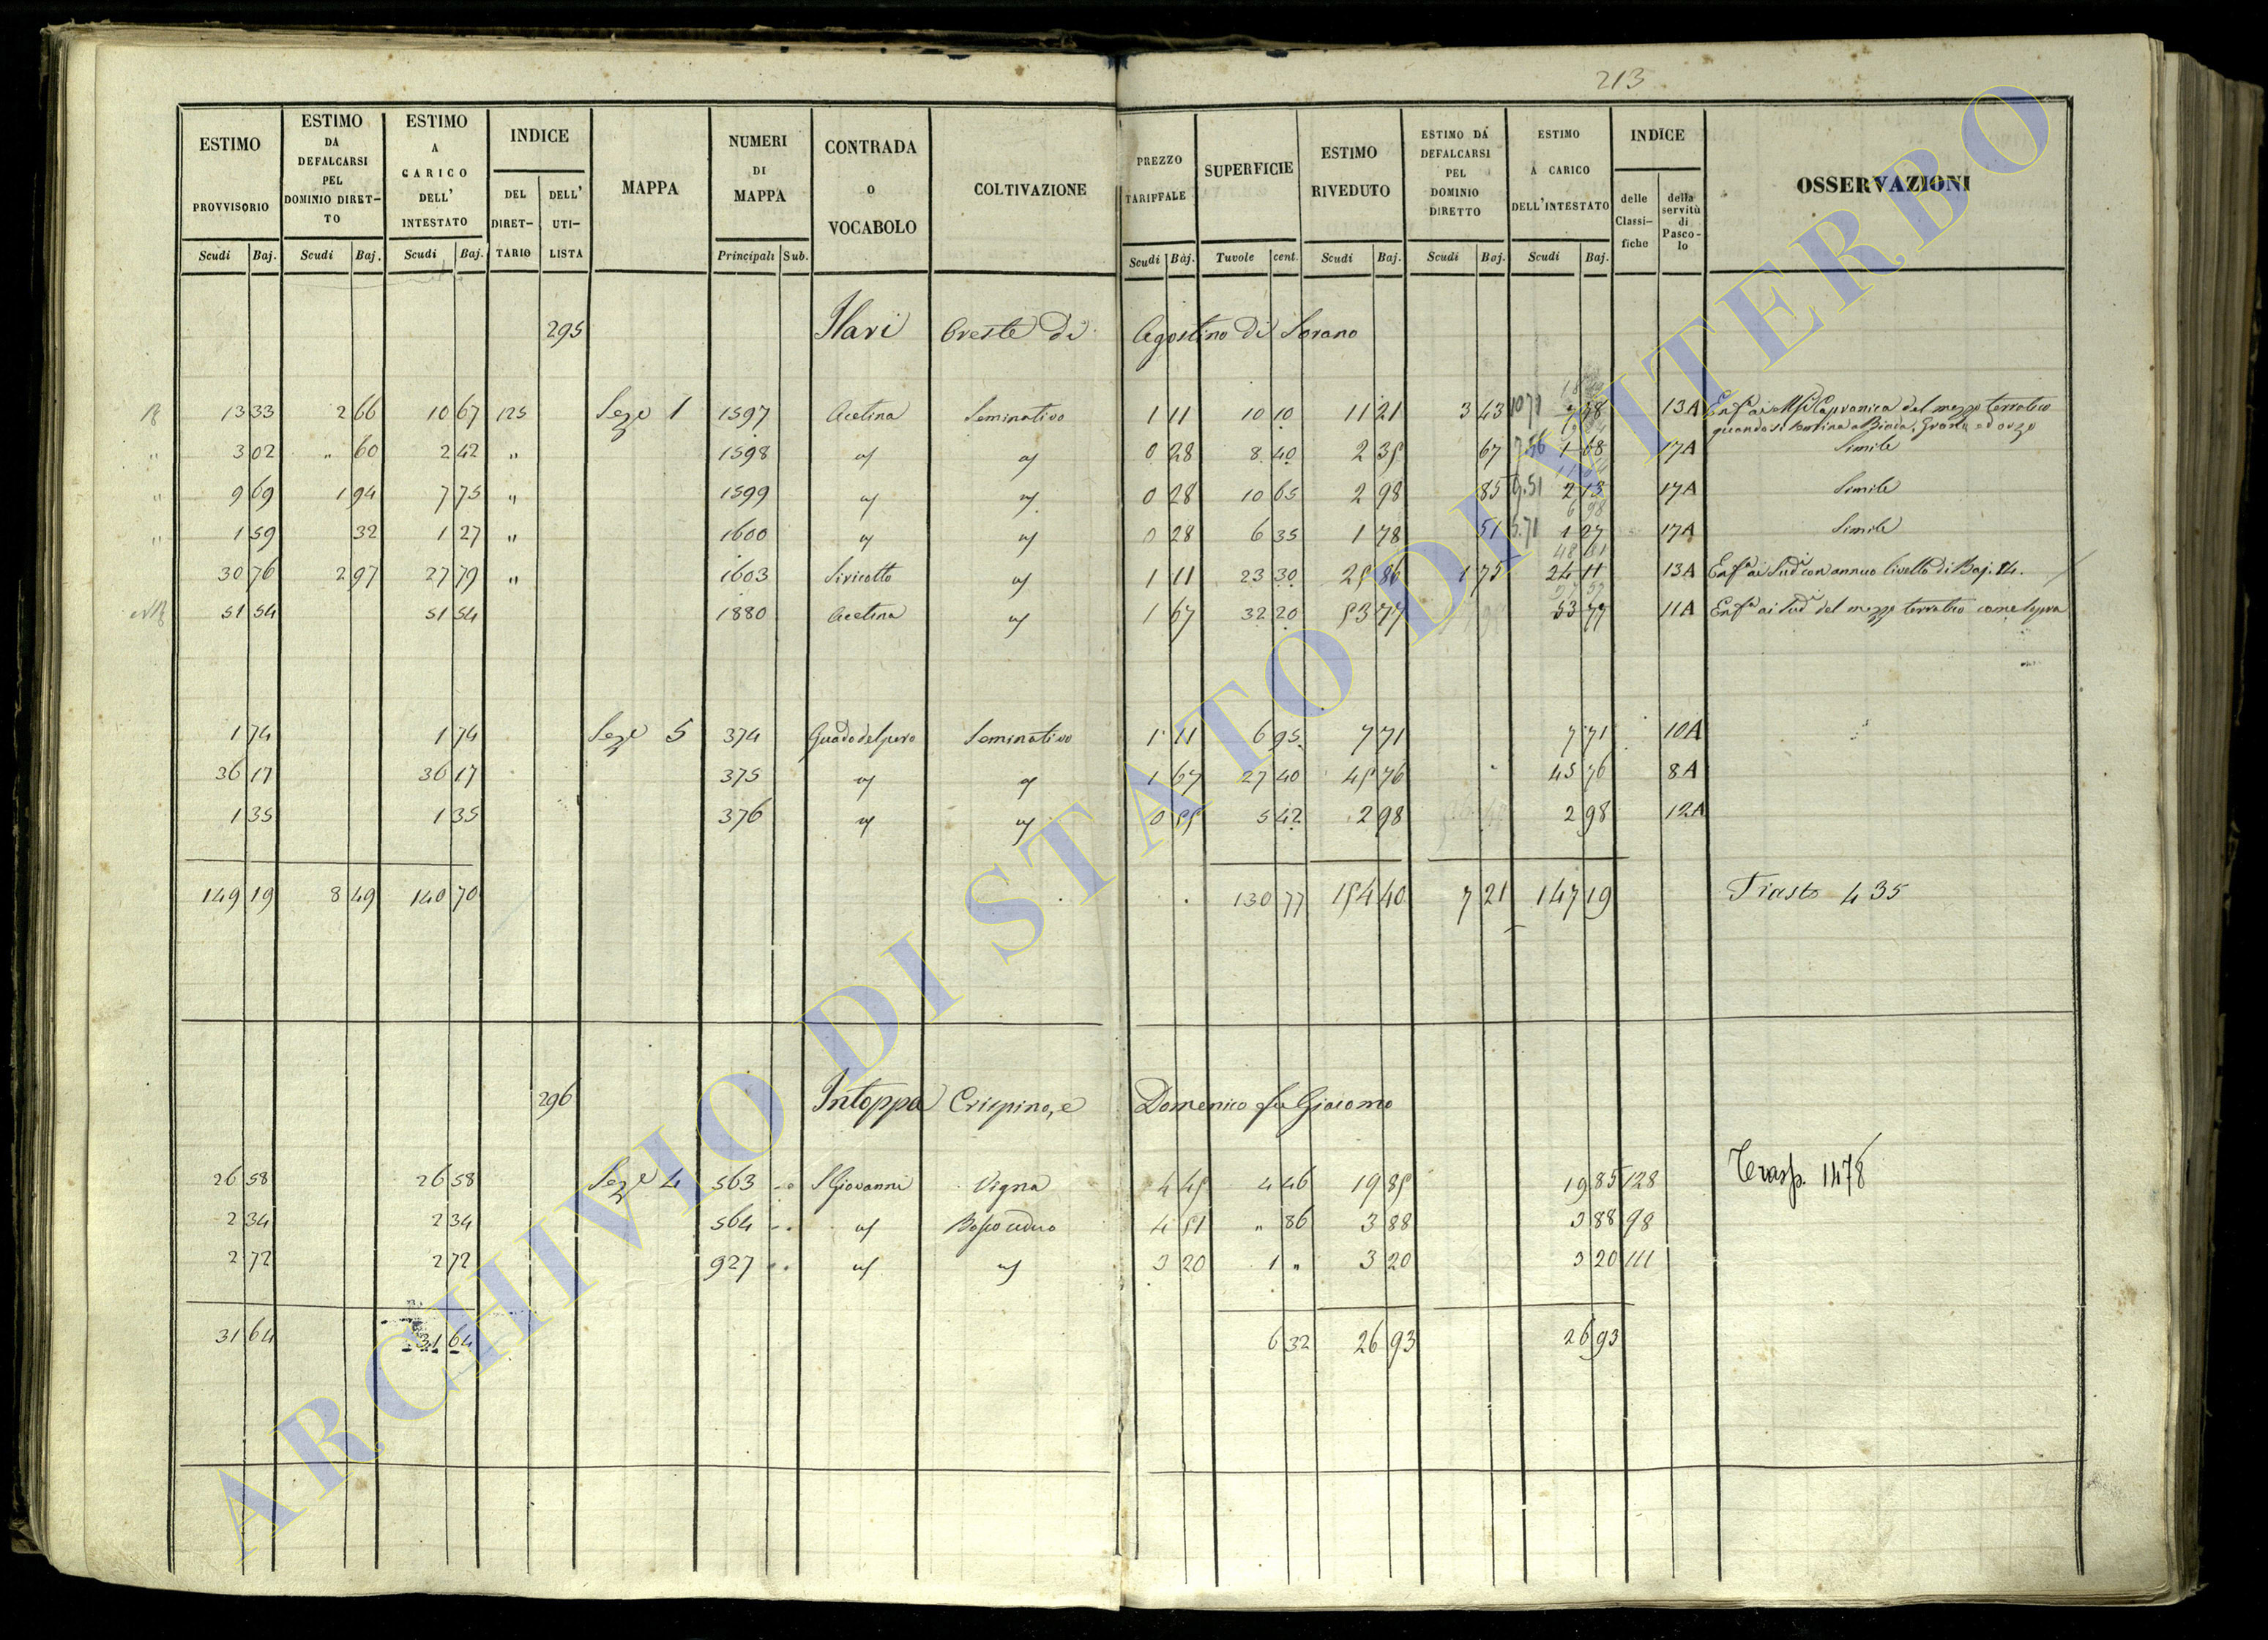 213
ESTIMO PROVVISORIO Scudi Baj. ESTIMO DA DEFALCARSI PEL DOMINIO DIRET-TO Scudi Baj. ESTIMO A CARICO DELL' INTESTATO Scudi Baj. INDICE DEL DIRET-TARIO DELL' UTI-LISTA MAPPA NUMERI DI MAPPA Principali Sub. CONTRADA O VOCABOLO COLTIVAZIONE PREZZO TARIFFALE Scudi Baj. SUPERFICIE Tavole cent. ESTIMO RIVEDUTO Scudi Baj. ESTIMO DA DEFALCARSI PEL DOMINIO DIRETTO Scudi Baj. ESTIMO A CARICO DELL'INTESTATO Scudi Baj. INDICE delle Classi-fiche della servitù di Pasco-lo OSSERVAZIONI
295 Ilari Oreste di Agostino di Sorano
13 33 2 66 10 67 125 Seze 1 1597 Acetina Seminativo 1 11 10 10 11 21 3 43 10 71 7 78 13A Enfa ai Capranica del mezzo terratico
quando si semina a Biada, Grano ed orzo
" 3 02 " 60 2 42 " 1598 0 28 8 40 2 35 67 7.56 1 68 17A Simile
" 9 69 1 94 7 75 " 1599 0 28 10 65 2 98 85 9.51 2 13 17A Simile
" 1 59 32 1 27 " 1600 0 28 6 35 1 78 51 5.71 1 27 17A Simile
30 76 2 97 27 79 " 1603 Sivicotto 1 11 23 30 25 86 1 75 24 11 13A Enfa ai Sudi con annuo livello di Baj. 84.
51 54 51 54 1880 Acetina 1 67 32 20 53 77 53 77 11A Enfa ai Sudi del mezzo terratico come sopra
1 74 1 74 Seze 5 374 Guado del pero Seminativo 1 11 6 95 7 71 7 71 10A
36 17 36 17 375 1 67 27 40 45 76 45 76 8A
1 35 1 35 376 0 55 5 42 2 98 2 98 12A
149 19 8 49 140 70 130 77 154 40 7 21 147 19 Trasto 435
296 Intoppa Crispino, e Domenico fu Giacomo
26 58 26 58 Seze 4 563 S Giovanni Vigna 4 45 4 46 19 85 19 85 128 Trasp. 1478
2 34 2 34 564 Bosco ceduo 4 51 " 86 3 88 3 88 98
2 72 2 72 927 3 20 1 " 3 20 3 20 111
31 64 31 64 6 32 26 93 26 93
ARCHIVIO DI STATO DI VITERBO